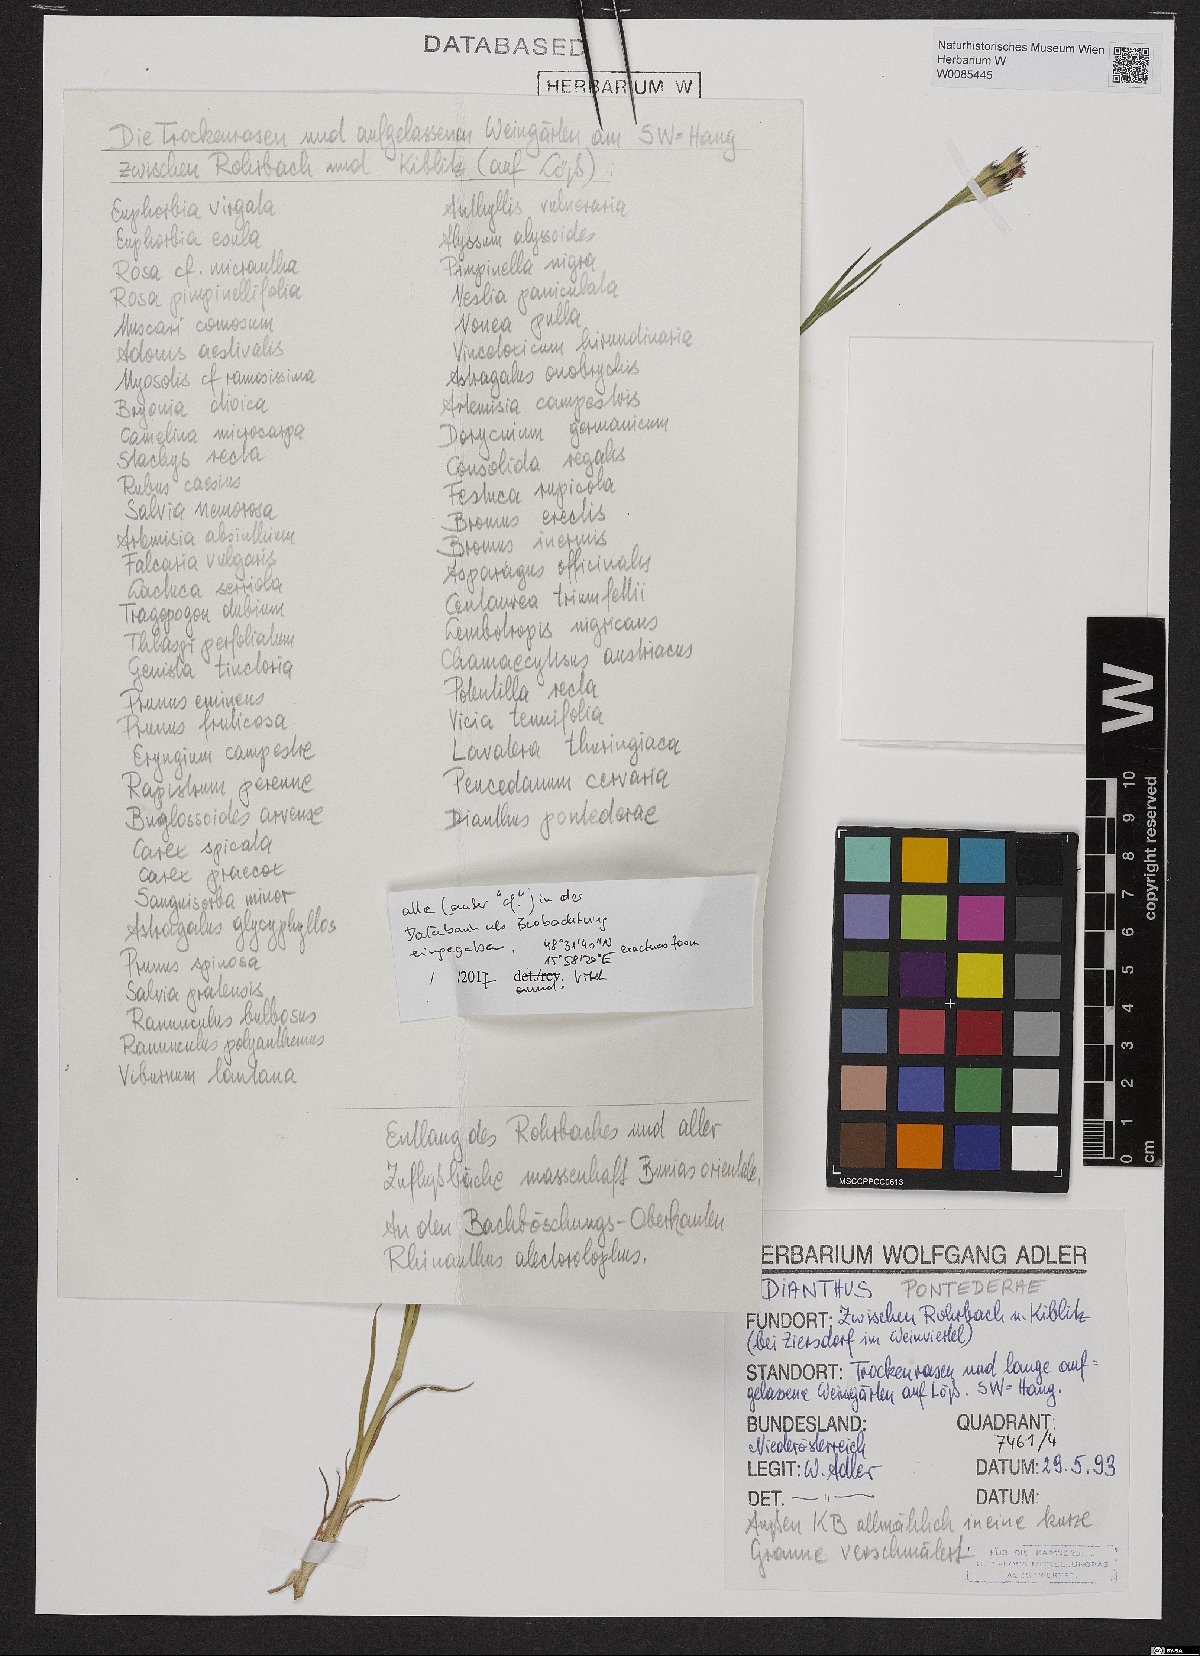 DATABASED
HERBARIUM W
Naturhistorisches Museum Wien
Herbarium W
W0085445
Die Trockenrasen und aufgelassenen Weingärten am SW-Hang
zwischen Rohrbach und Kiblitz (auf Löß):
Euphorbia virgata
Euphorbia esula
Rosa cf. micrantha
Rosa pimpinellifolia
Muscari comosum
Adonis aestivalis
Myosotis cf ramosissima
Bryonia dioica
Camelina microcarpa
Stachys recta
Rubus caesius
Salvia nemorosa
Artemisia absinthium
Falcaria vulgaris
Lactuca serriola
Tragopogon dubium
Thlaspi perfoliatum
Genista tinctoria
Prunus eminens
Prunus fruticosa
Eryngium campestre
Rapistrum perenne
Buglossoides arvense
Carex spicata
Carex praecox
Sanguisorba minor
Astragalus glycyphyllos
Prunus spinosa
Salvia pratensis
Ranunculus bulbosus
Ranunculus polyanthemus
Viburnum lantana
Anthyllis vulneraria
Alyssum alyssoides
Pimpinella nigra
Neslia paniculata
Nonea pulla
Vincetoxicum hirundinaria
Astragalus onobrychis
Artemisia campestris
Dorycnium germanicum
Consolida regalis
Festuca rupicola
Bromus erectis
Bromus inermis
Asparagus officinalis
Centaurea triumfettii
Lembotropis nigricans
Chamaecytisus austriacus
Potentilla recta
Vicia tenuifolia
Lavatera thuringiaca
Peucedanum cervaria
Dianthus pontederae
alle (außer "cf.") in der
Datenbank als Beobachtung
eingegeben. 48°31'40"N
15°58'20"E
/ .2017 det./rev.
Entlang des Rohrbaches und aller
Zuflußbäche massenhaft Bunias orientale.
An den Bachböschungs-Oberkanten
Rhinanthus alectorolophus.
ERBARIUM WOLFGANG ADLER
DIANTHUS PONTEDERAE
FUNDORT: Zwischen Rohrbach u. Kiblitz
(bei Ziersdorf im Weinviertel)
STANDORT: Trockenrasen und lange auf=
gelassene Weingärten auf Löß. SW-Hang.
BUNDESLAND: QUADRANT:
Niederösterreich 7461/4
LEGIT: W. Adler DATUM: 29.5.93
DET. — " — DATUM:
Außen KB allmählich in eine kurze
Granne verschmälert
FÜR DIE KARTIERUNG
W
0 1 2 3 4 5 6 7 8 9 10
cm
copyright reserved
MSCCPPCC0613
BY-SA